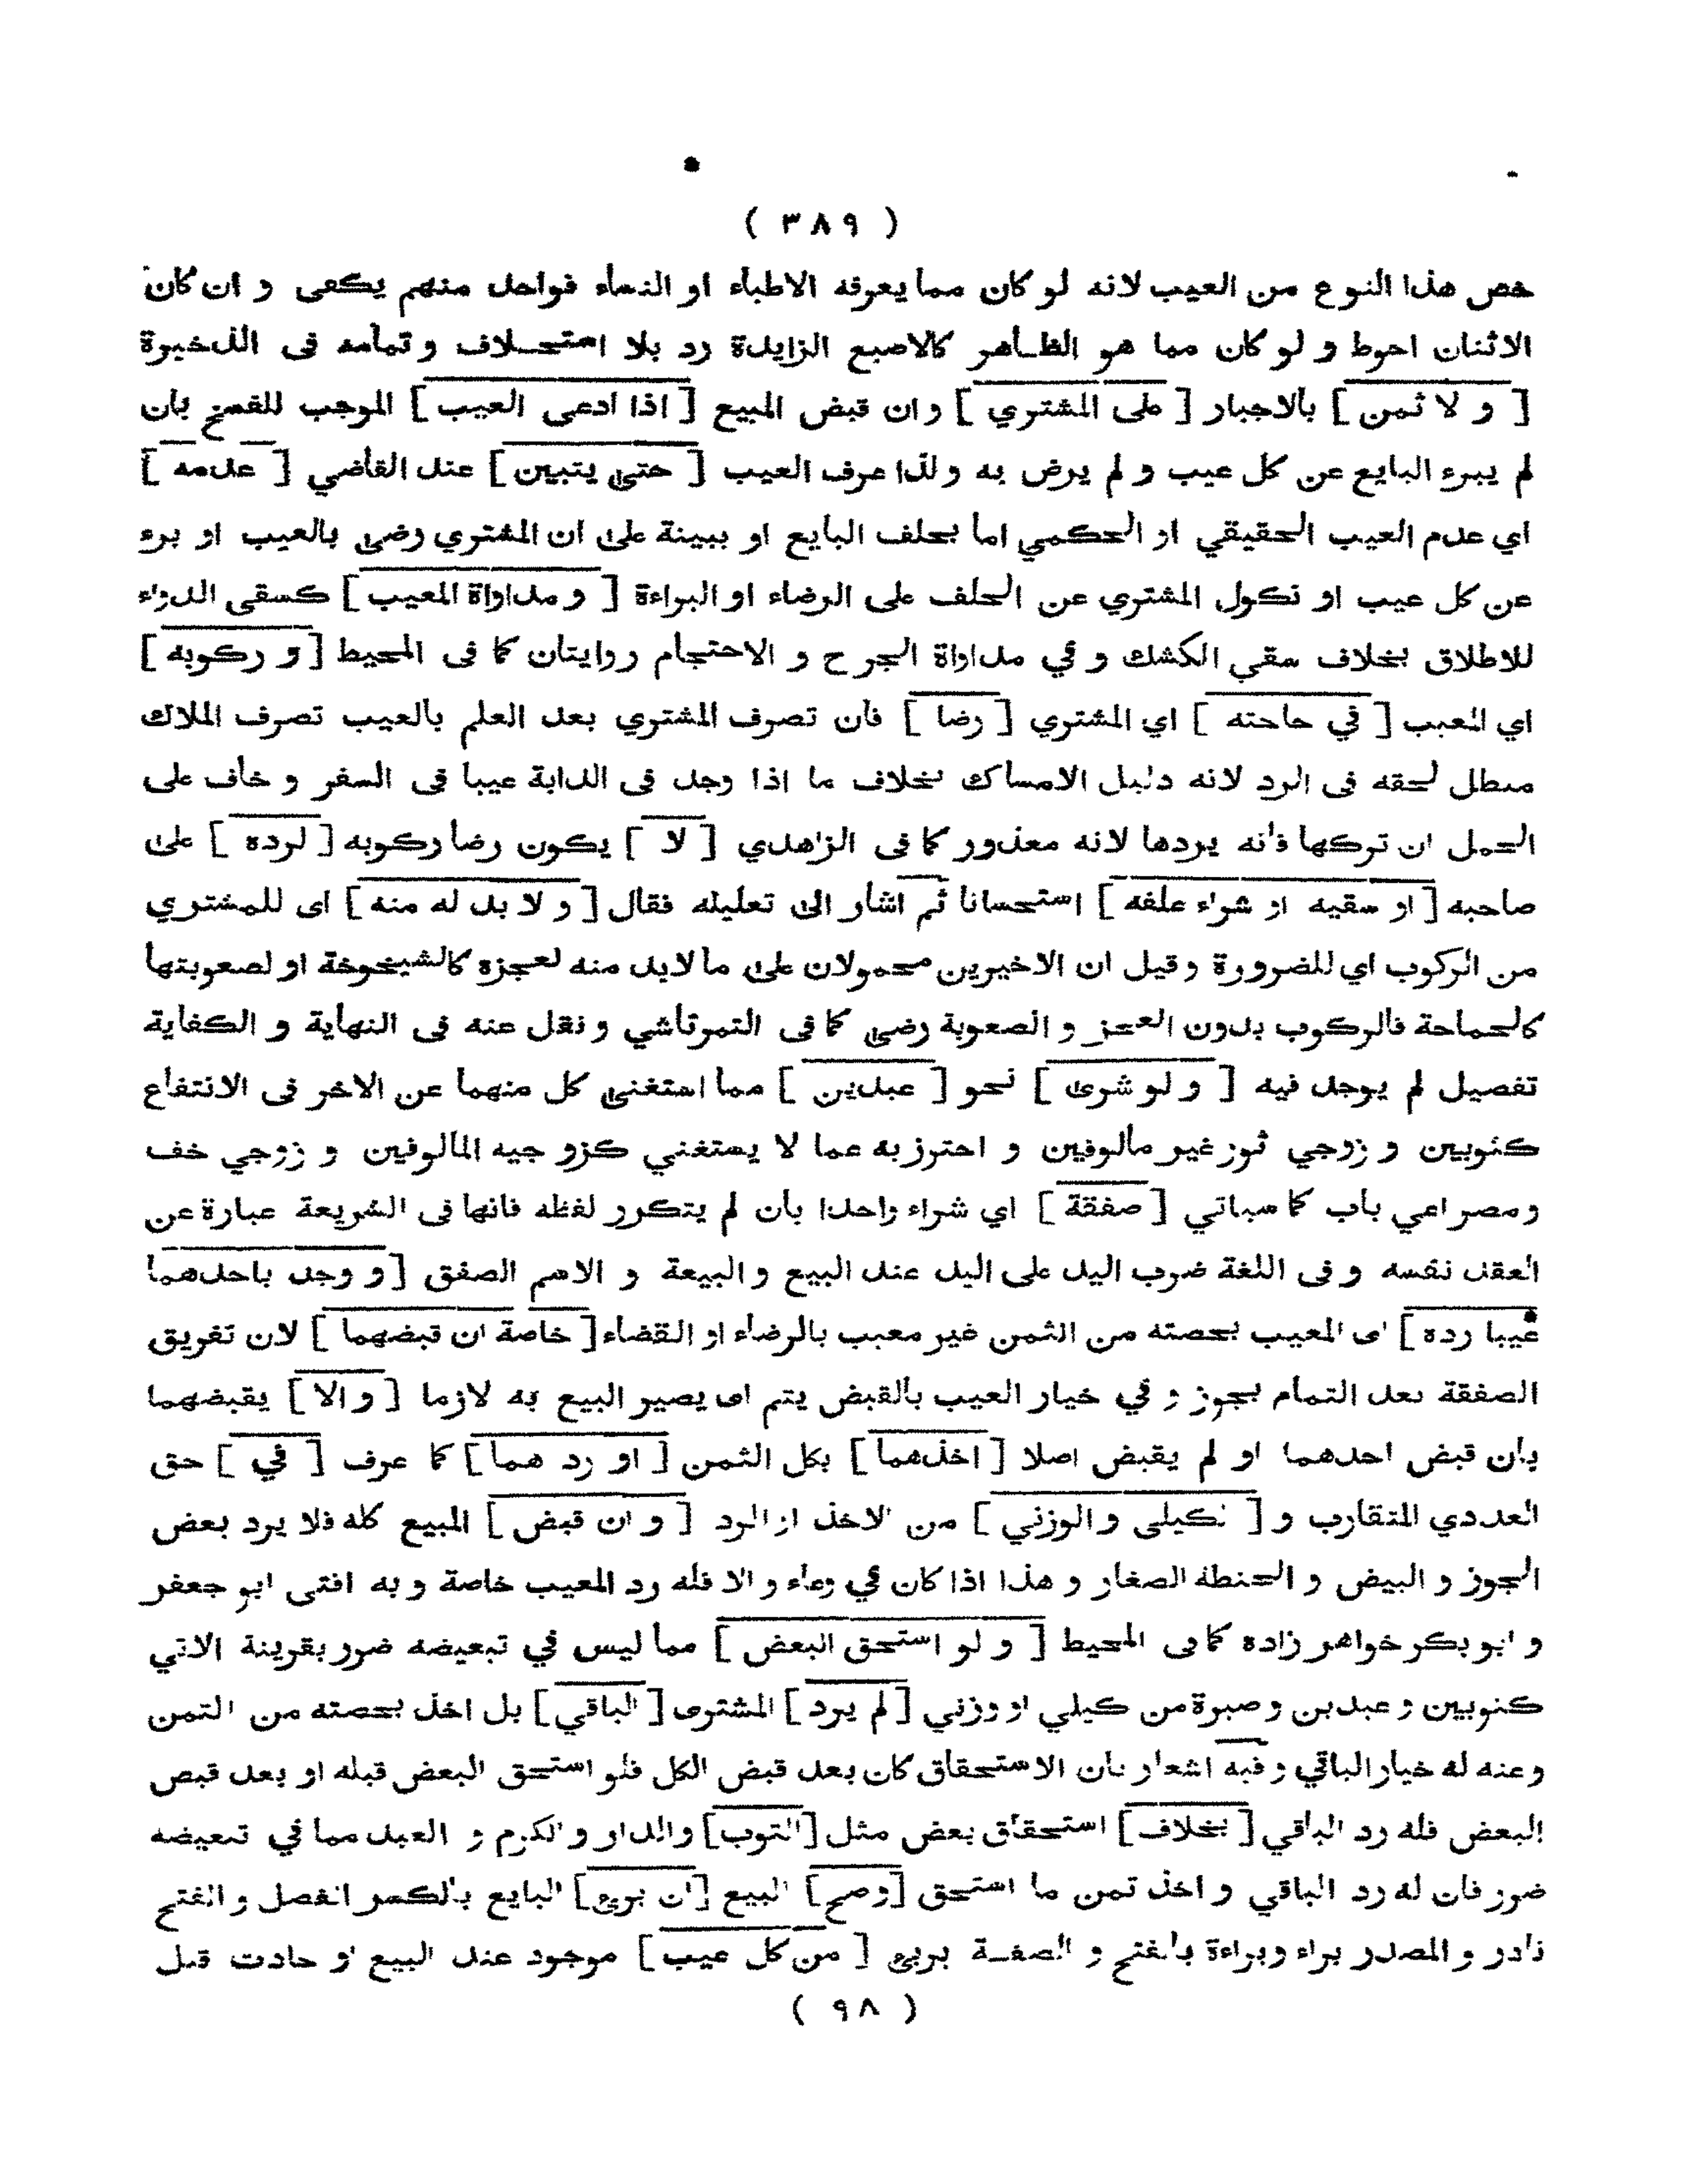 ( ٣٨٩ )
خص هذا النوع من العيب لانه لو كان مما يعرفه الاطباء او النساء فواحد منهم يكفى و ان كان
الاثنان احوط و لو كان مما هو الظاهر كالاصبع الزايدة رد بلا استحلاف و تمامه فى الذخيرة
[ و لا ثمن ] بالاجبار [ على المشتري ] و ان قبض المبيع [ اذا ادعى العيب ] الموجب للفسخ بان
لم يبرء البايع عن كل عيب و لم يرض به و لذا عرف العيب [ حتى يتبين ] عند القاضي [ عدمه ]
اي عدم العيب الحقيقي او الحكمي اما بحلف البايع او ببينة على ان المشتري رضى بالعيب او برء
عن كل عيب او نكول المشتري عن الحلف على الرضاء او البراءة [ و مداواة المعيب ] كسقى الدواء
للاطلاق بخلاف سقي الكشك و في مداواة الجرح و الاحتجام روايتان كما فى المحيط [ و ركوبه ]
اي المعيب [ في حاجته ] اي المشتري [ رضا ] فان تصرف المشتري بعد العلم بالعيب تصرف الملاك
مبطل لحقه فى الرد لانه دليل الامساك بخلاف ما اذا وجد فى الدابة عيبا فى السفر و خاف على
الحمل ان تركها فانه يردها لانه معذور كما فى الزاهدي [ لا ] يكون رضا ركوبه [ لرده ] على
صاحبه [ او سقيه او شراء علفه ] استحسانا ثم اشار الى تعليله فقال [ و لا بد له منه ] اى للمشتري
من الركوب اي للضرورة و قيل ان الاخيرين محمولان على ما لابد منه لعجزه كالشيخوخة او لصعوبتها
كالجماحة فالركوب بدون العجز و الصعوبة رضى كما فى التمرتاشي و نقل عنه فى النهاية و الكفاية
تفصيل لم يوجد فيه [ و لو شرى ] نحو [ عبدين ] مما استغنى كل منهما عن الاخر فى الانتفاع
كثوبين و زوجي ثور غير مألوفين و احترز به عما لا يستغني كزوجيه المالوفين و زوجي خف
و مصراعي باب كما سياتي [ صفقة ] اي شراء واحدا بان لم يتكرر لفظه فانها فى الشريعة عبارة عن
العقد نفسه و فى اللغة ضرب اليد على اليد عند البيع و البيعة و الاسم الصفق [ و وجد باحدهما
عيبا رده ] اى المعيب بحصته من الثمن غير معيب بالرضاء او القضاء [ خاصة ان قبضهما ] لان تفريق
الصفقة بعد التمام يجوز و في خيار العيب بالقبض يتم اى يصير البيع به لازما [ و الا ] يقبضهما
بان قبض احدهما او لم يقبض اصلا [ اخذهما ] بكل الثمن [ او رد هما ] كما عرف [ في ] حق
العددي المتقارب و [ الكيلى و الوزني ] من الاخذ او الرد [ و ان قبض ] المبيع كله فلا يرد بعض
الجوز و البيض و الحنطة الصغار و هذا اذا كان في وعاء و الا فله رد المعيب خاصة و به افتى ابو جعفر
و ابو بكر خواهر زاده كما فى المحيط [ و لو استحق البعض ] مما ليس في تبعيضه ضرر بقرينة الاتي
كثوبين و عبدين و صبرة من كيلي او وزني [ لم يرد ] المشترى [ الباقي ] بل اخذ بحصته من الثمن
و عنه له خيار الباقي و فيه اشعار بان الاستحقاق كان بعد قبض الكل فلو استحق البعض قبله او بعد قبض
البعض فله رد الباقي [ بخلاف ] استحقاق بعض مثل [ الثوب ] والدار و الكرم و العبد مما في تبعيضه
ضرر فان له رد الباقي و اخذ ثمن ما استحق [ وصح ] البيع [ ان برئ ] البايع بالكسر افصل و الفتح
نادر و المصدر براء و براءة بالفتح و الصفة بريئ [ من كل عيب ] موجود عند البيع او حادث قبل
( ٩٨ )